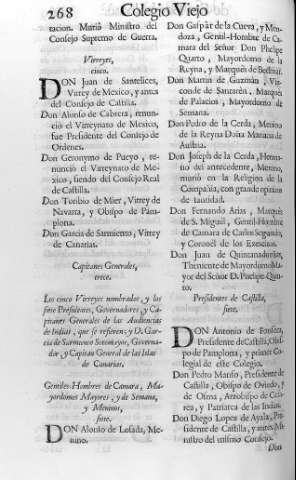 268 Colegio Viejo
tacion. Murió Ministro del
Consejo Supremo de Guerra.
Virreyes,
cinco.
DON Juan de Santelices,
Virrey de Mexico, y antes
del Consejo de Castilla.
Don Alonso de Cabrera, renunció el Virreynato de Mexico,
fue Presidente del Consejo de
Ordenes.
Don Geronymo de Pueyo, renunció el Virreynato de Mexico, siendo del Consejo Real
de Castilla.
Don Toribio de Mier, Virrey de
Navarra, y Obispo de Pamplona.
Don Garcia de Sarmiento, Virrey
de Canarias.
Capitanes Generales,
trece.
Los cinco Virreyes nombrados, y los
siete Presidentes, Governadores, y Capitanes Generales de las Audiencias
de Indias, que se refieren; y D. Garcia de Sarmiento Sotomayor, Governador, y Capitan General de las Islas
de Canarias.
Gentiles-Hombres de Camara, Mayordomos Mayores, y de Semana,
y Meninos,
siete.
DON Alonso de Losada, Menino.
Don Gaspàr de la Cueva, y Mendoza, Gentil-Hombre de Camara del Señor Don Phelipe
Quarto, Mayordomo de la
Reyna, y Marquès de Bedmar.
Don Martin de Guzmàn, Vizconde de Sanzarèn, Marquès
de Palacios, Mayordomo de
Semana.
Don Pedro de la Cerda, Menino
de la Reyna Doña Mariana de
Austria.
Don Joseph de la Cerda, Hermano del antecedente, Menino,
murió en la Religion de la
Compañia, con grande opinion
de santidad.
Don Fernando Arias, Marquès
de S. Miguel, Gentil-Hombre
de Camara de Carlos Segundo,
y Coronel de los Exercitos.
Don Juan de Quintanadueñas,
Theniente de Mayordomo Mayor del Señor D. Phelipe Quinto.
Presidentes de Castilla,
siete.
DON Antonio de Fonseca,
Presidente de Castilla, Obispo de Pamplona, y primer Colegial de este Colegio.
Don Pedro Manso, Presidente de
Castilla, Obispo de Oviedo, y
de Osma, Arzobispo de Cesarea, y Patriarca de las Indias.
Don Diego Lopez de Ayala, Presidente de Castilla, y antes Ministro del mismo Consejo.
Don